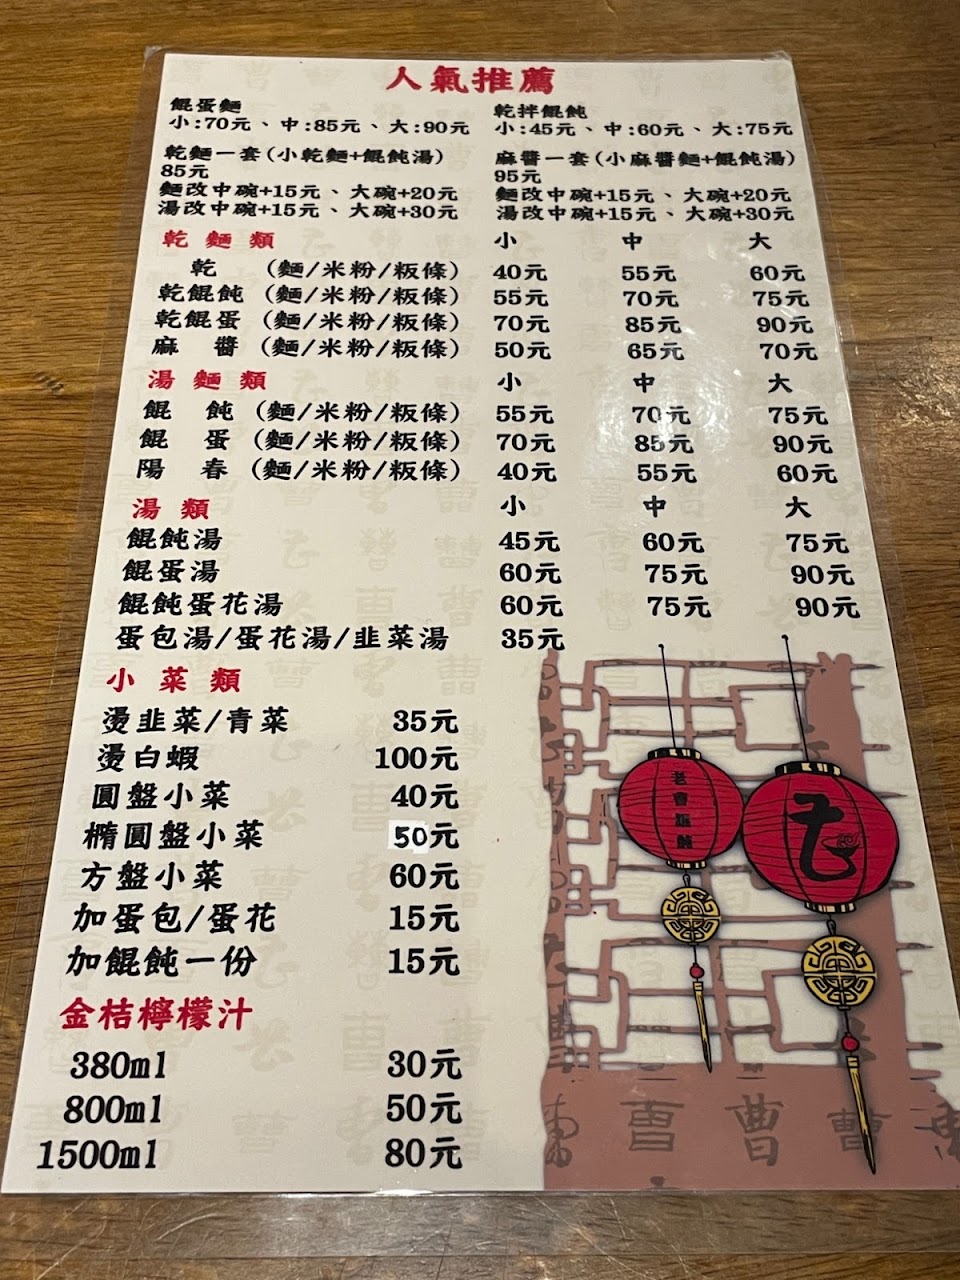 人氣推薦
餛蛋麵
小:70元、中:85元、大:90元
乾拌餛飩
小:45元、中:60元、大:75元
乾麵一套(小乾麵+餛飩湯)
85元
麵改中碗+15元、大碗+20元
湯改中碗+15元、大碗+30元
麻醬一套(小麻醬麵+餛飩湯)
95元
麵改中碗+15元、大碗+20元
湯改中碗+15元、大碗+30元
乾麵類 小 中 大
乾 (麵/米粉/粄條) 40元 55元 60元
乾餛飩 (麵/米粉/粄條) 55元 70元 75元
乾餛蛋 (麵/米粉/粄條) 70元 85元 90元
麻 醬 (麵/米粉/粄條) 50元 65元 70元
湯麵類 小 中 大
餛 飩 (麵/米粉/粄條) 55元 70元 75元
餛 蛋 (麵/米粉/粄條) 70元 85元 90元
陽 春 (麵/米粉/粄條) 40元 55元 60元
湯類 小 中 大
餛飩湯 45元 60元 75元
餛蛋湯 60元 75元 90元
餛飩蛋花湯 60元 75元 90元
蛋包湯/蛋花湯/韭菜湯 35元
小菜類
燙韭菜/青菜 35元
燙白蝦 100元
圓盤小菜 40元
橢圓盤小菜 50元
方盤小菜 60元
加蛋包/蛋花 15元
加餛飩一份 15元
金桔檸檬汁
380ml 30元
800ml 50元
1500ml 80元
老曹餛飩
老
曹
曹
曹